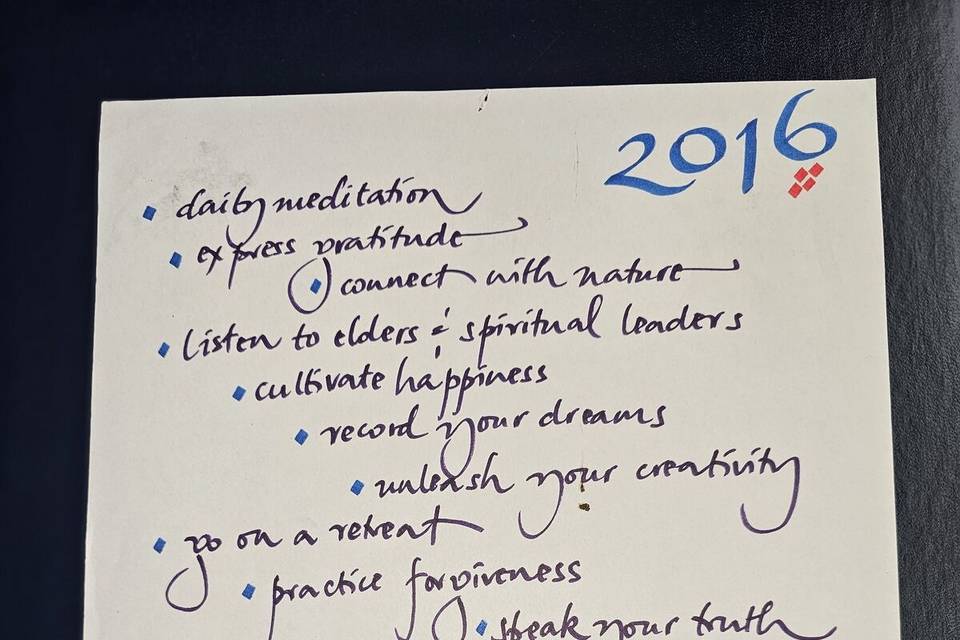 2016
daily meditation
express gratitude
connect with nature
listen to elders & spiritual leaders
cultivate happiness
record your dreams
unleash your creativity
go on a retreat
practice forgiveness
speak your truth